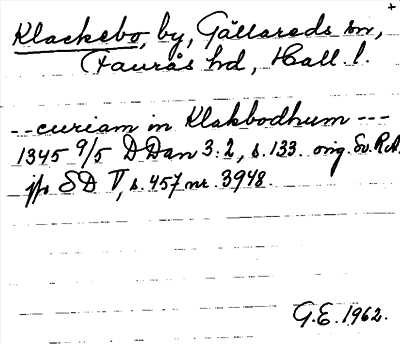 +
Klackebo, by, Gällareds sn,
Faurås hd, Hall. l.
-- curiam in Klakbodhum ---
1345 9/5 DDan 3:2, s. 133. orig. Sv. R.A.
jfr SD V, s. 457 nr. 3948.
G.E. 1962.